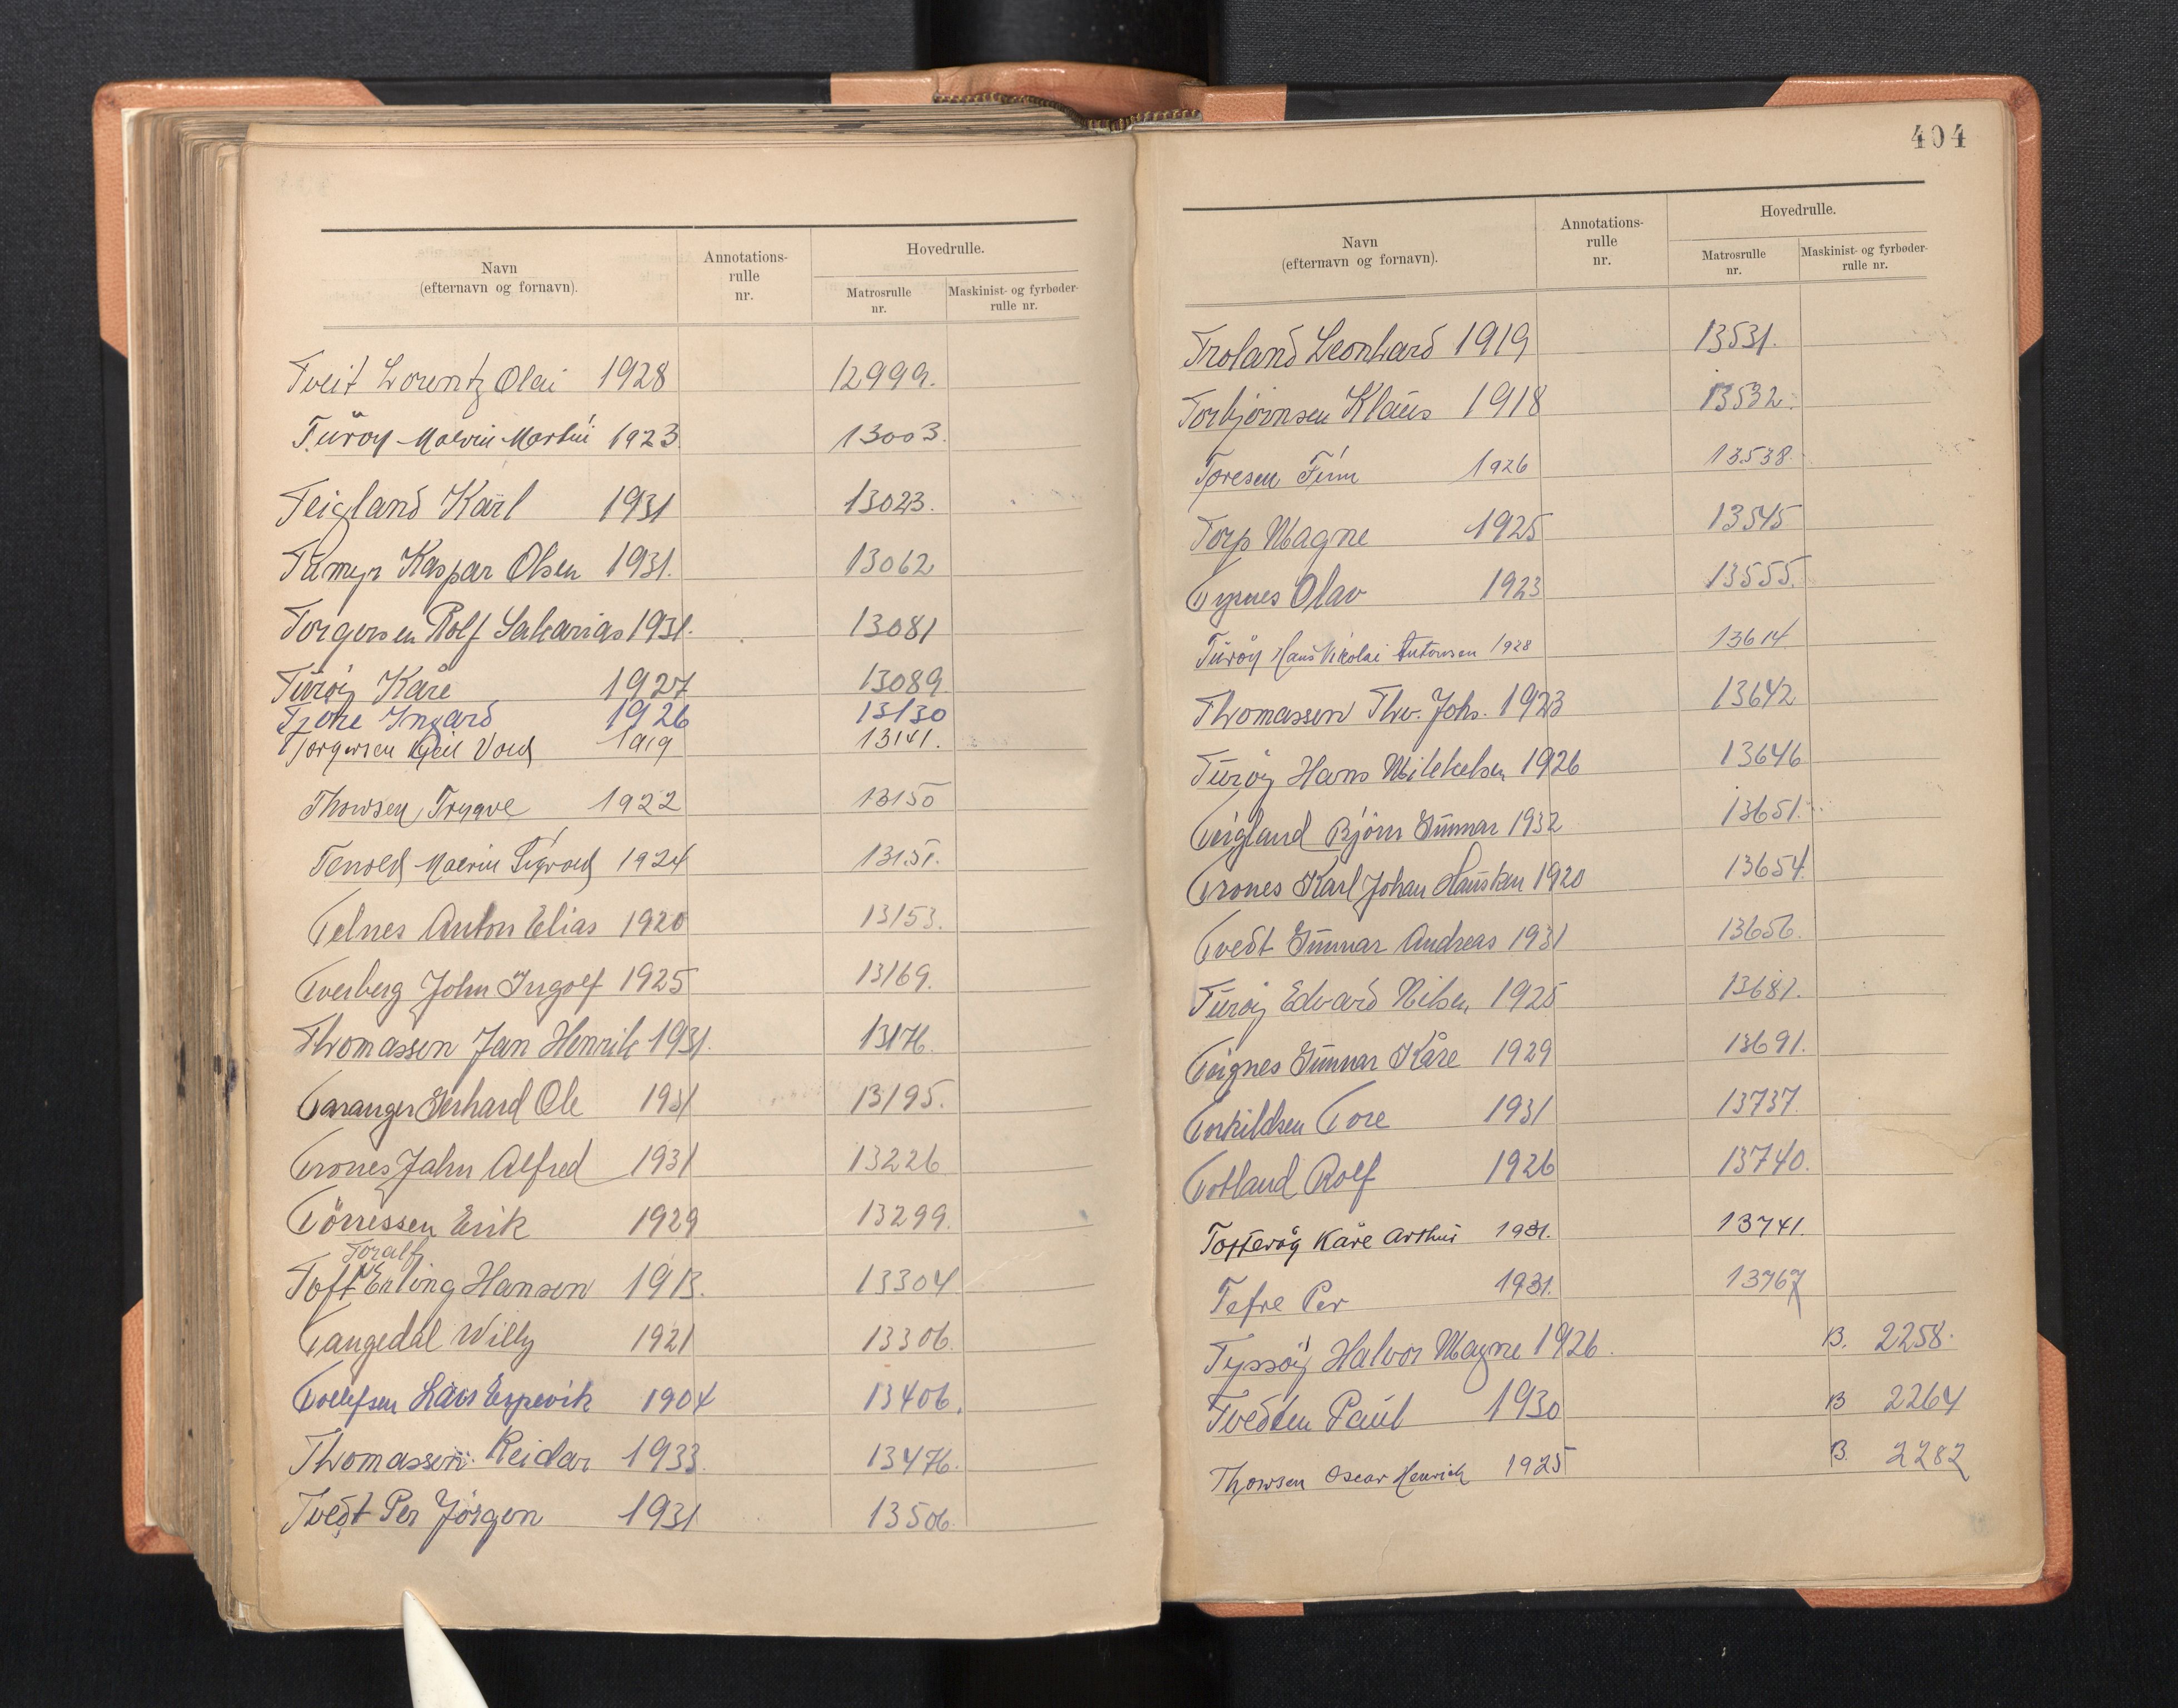 Navn
(efternavn og fornavn).
Annotations-
rulle
nr.
Hovedrulle.
Matrosrulle
nr.
Maskinist- og fyrbøder-
rulle nr.
Tveit Lorentz Olai 1928 12999.
Turöy Malvin Martin 1923. 13003.
Teigland Karl 1931 13023.
Tumyr Kaspar Olsen 1931. 13062
Torgersen Rolf Sakarias 1931. 13081
Turöy Kåre 1927 13089.
Ingvard 1926 13130
Torgersen 1919 13141.
Thowsen Trygve 1922 13150
Tenold Malvin Sigvald 1924 13151.
Telnes Anton Elias 1920 13153.
Tverberg John Ingolf 1925 13169.
Thomassen Jan Henrik 1931. 13176.
Taranger Gerhard Ole 1931 13195.
Trones Jahn Alfred 1931 13226
Törressen Erik 1929 13299.
Toralf
Toft Erling Hansen 1913. 13304
Tangedal Willy 1921 13306.
Tollefsen Lars Espevik 1904 13406.
Thomassen Reidar 1933. 13476.
Tvedt Per Jörgen 1931 13506.
404
Navn
(efternavn og fornavn).
Annotations-
rulle
nr.
Hovedrulle.
Matrosrulle
nr.
Maskinist- og fyrbøder-
rulle nr.
Troland Leonhard 1919 13531.
Torbjörnsen Klaus 1918 13532.
Toresen Finn 1926 13538.
Torp Magne 1925 13545
Tyrnes Olav 1923 13555.
Turöy Hans Nikolai Antonsen 1928 13614
Thomassen Thv. Johs. 1923 13642
Turöy Hans Mikkelsen 1926 13646
Teigland Björn Gunnar 1932 13651.
Trones Karl Johan Hausken 1920 13654.
Tvedt Gunnar Andreas 1931 13656.
Turöy Edvard Nilsen 1925 13681.
Teignes Gunnar Kåre 1929 13691.
Torkildsen Tore 1931 13737.
Totland Rolf 1926 13740.
Tofteråg Kåre Arthur 1931. 13741.
Tefre Per 1931. 13767
Tyssöy Halvor Magne 1926. B. 2258.
Tvedten Paul 1930 B 2264
Thowsen Oscar Henrich 1925 B. 2282